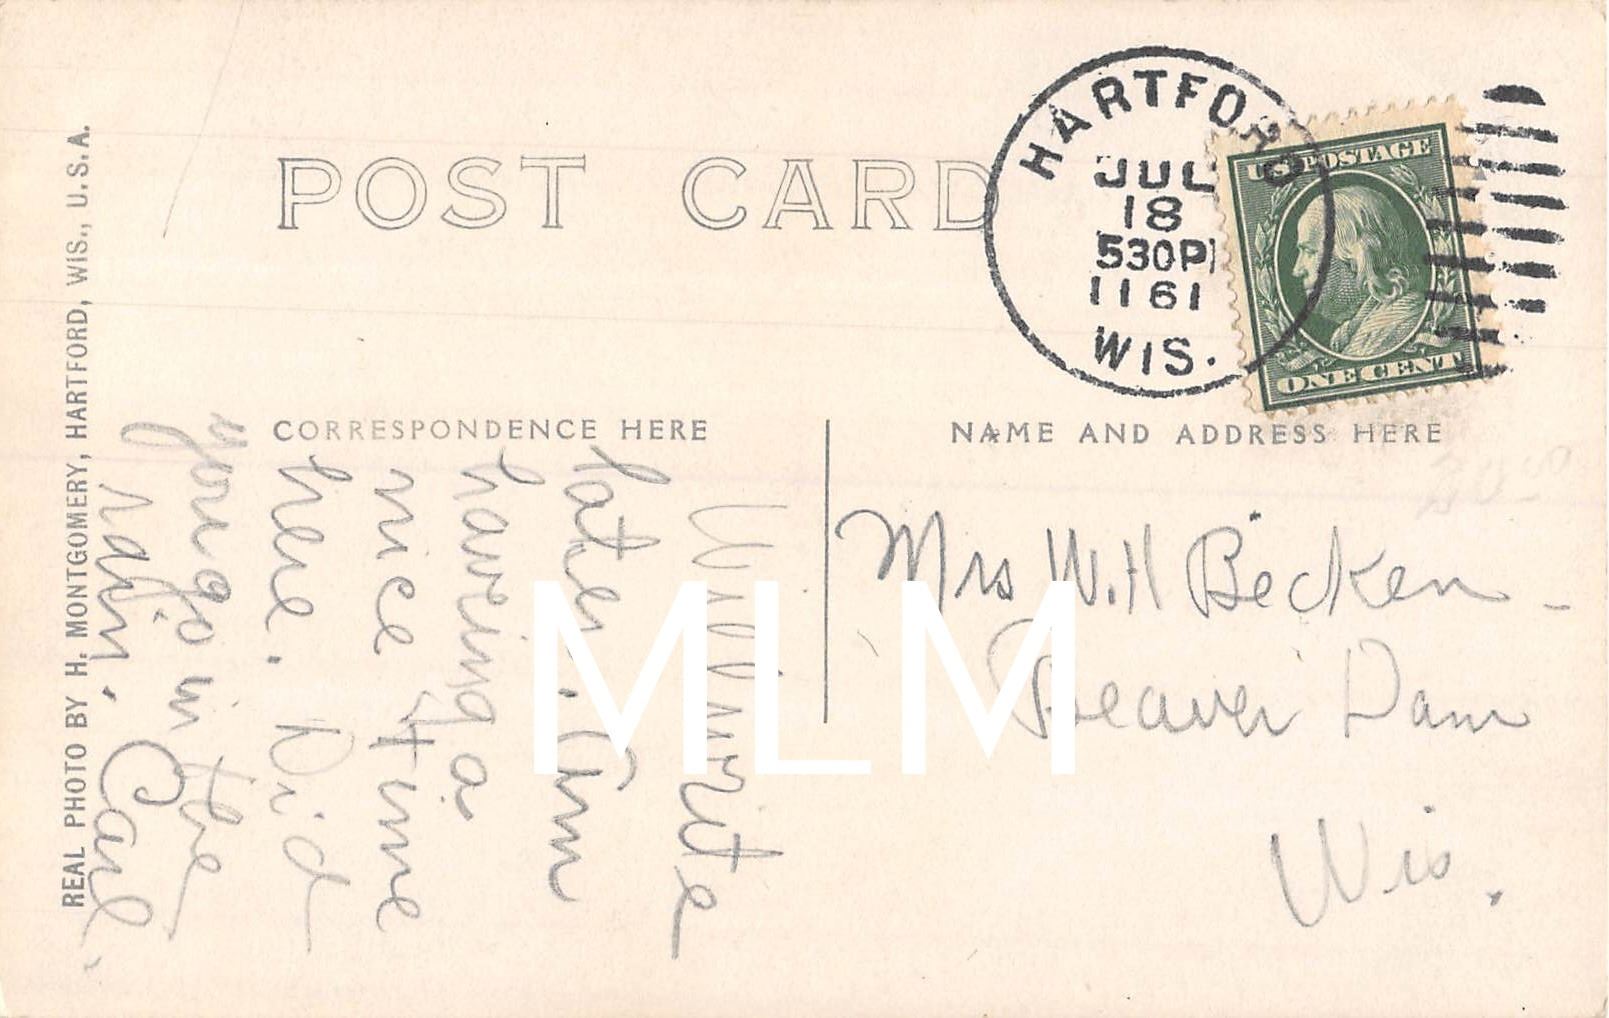 POST CARD
HARTFORD
JUL
18
530P
1161
WIS.
U.S. POSTAGE
ONE CENT
CORRESPONDENCE HERE
NAME AND ADDRESS HERE
Will write
later. Am
having a
nice time
here. Did
you go in the
rain. Carl.
Mrs W. H Becken
Beaver Dam
Wis.
REAL PHOTO BY H. MONTGOMERY, HARTFORD, WIS., U.S.A.
MLM